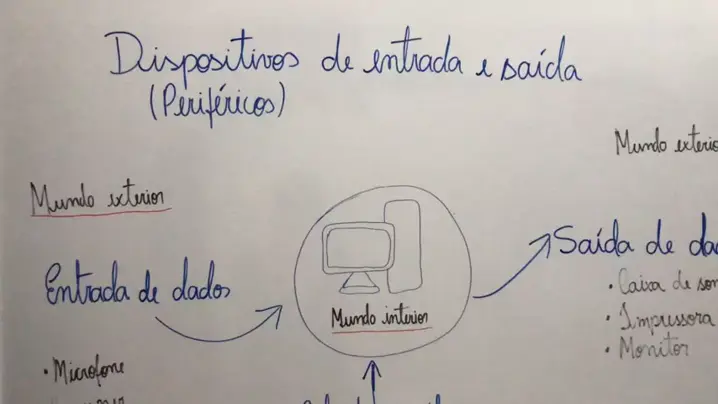 Dispositivos de entrada e saída
(Periféricos)
Mundo exterior
Entrada de dados
• Microfone
Mundo interior
Mundo exterio
Saída de da
• Caixa de som
• Impressora
• Monitor